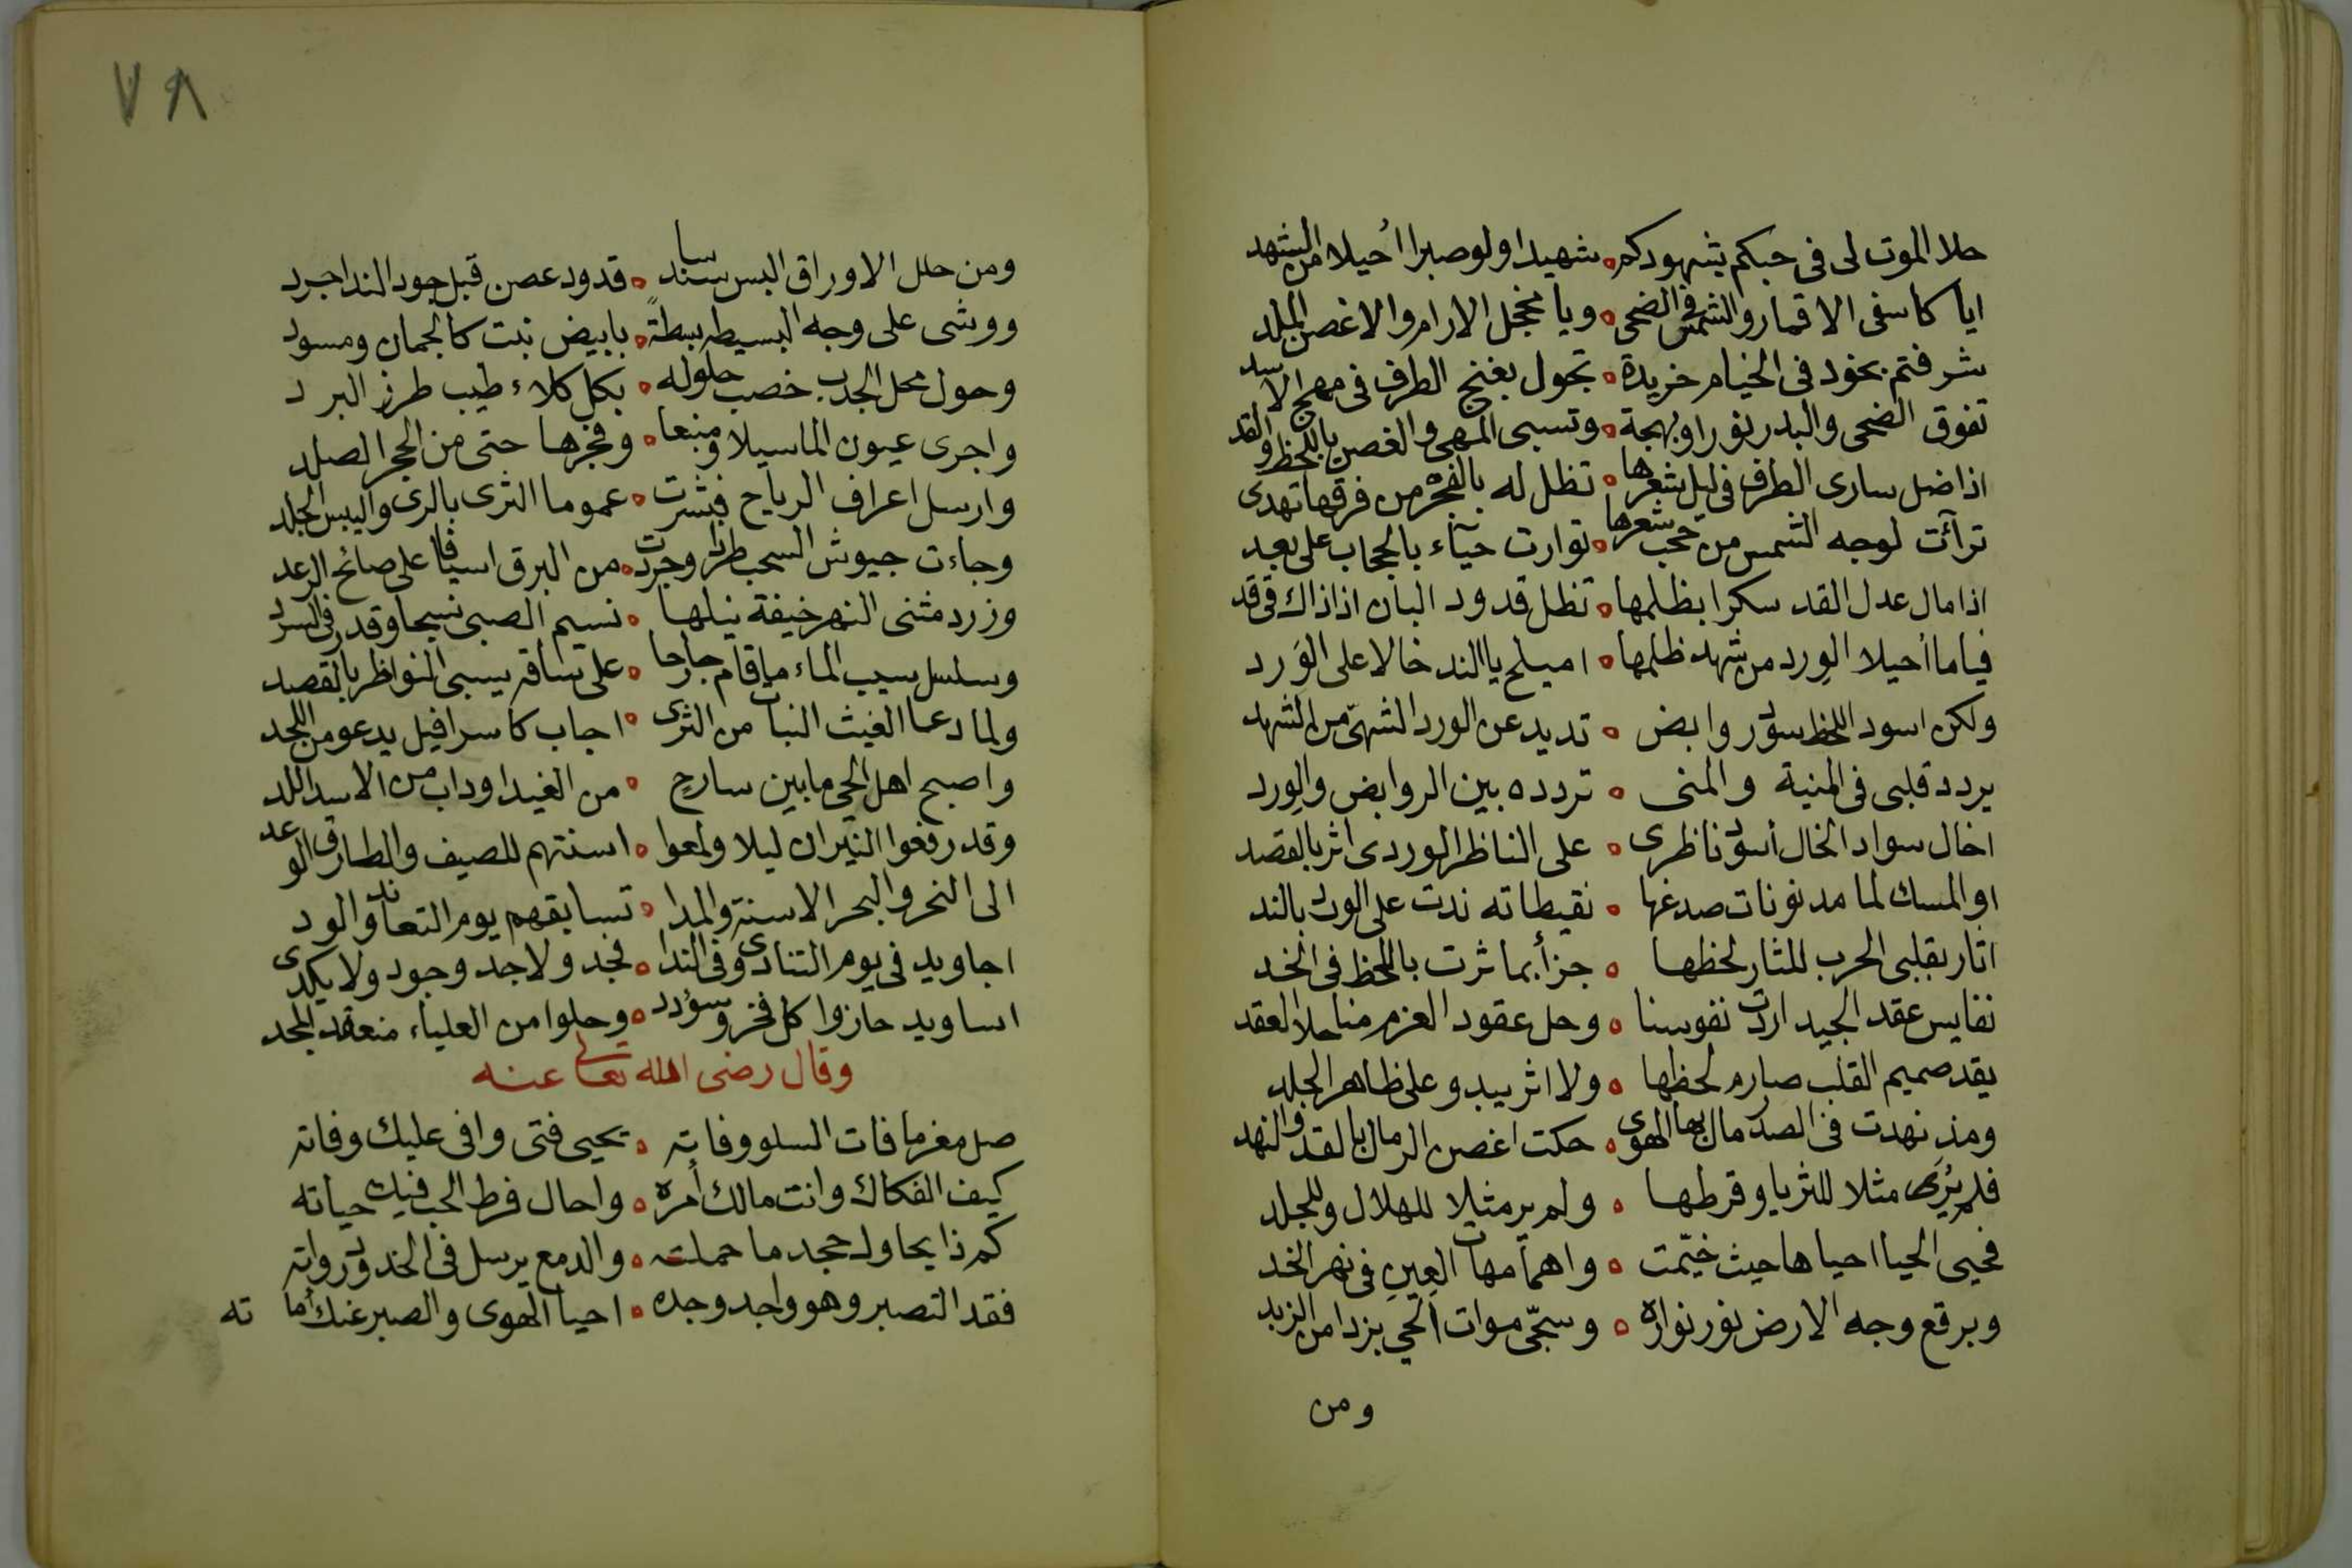 حلا الموت لى فى حبكم بشهودكم ه شهيدا ولو صبرا أحيلا من الشهد
ايا كاسفى الاقمار والشمس فى الضحى ه ويا مخجل الارام والاغصن الملد
شرفتم بخود فى الخيام خريدة ه تجول بغنج الطرف فى مهج الاسد
تفوق الضحى والبدر نورا وبهجة ه وتسبى المهى والغصن باللحظ والقد
اذا ضل سارى الطرف فى ليل شعرها ه تظل له بالفجر من فرقها تهدى
ترآئت لوجه الشمس من حجب شعرها ه توارت حيآء بالحجاب على بعد
اذا مال عدل القد سكرا بظلمها ه تظل قدود البان اذ ذاك فى قد
فياما أحيلا الورد من شهد ظلمها ه اميلح يا الند خالا على الورد
ولكن اسود اللحظ سود روابض ه تديد عن الورد الشهى من الشهد
يردد قلبى فى المنية والمنى ه تردده بين الروابض والورد
اخال سواد الخال أسود ناظرى ه على الناظر الوردى اثر بالقصد
او المسك لما مد نونات صدغها ه نقيطاته ندت على الورد بالند
اثار بقلبى الحرب للثار لحظها ه جزأ بما ثرت باللحظ فى الخد
نفايس عقد الجيد اردت نفوسنا ه وحل عقود العزم منا حلا العقد
يقد صميم القلب صارم لحظها ه ولا اثر يبدو على ظاهر الجلد
ومذ نهدت فى الصدر مال بها الهوى ه حكت اغصن الرمال بالقد والنهد
فلم يرى مثلا للثريا وقرطها ه ولم ير مثيلا للهلال وللجلد
فحيى الحيا احياها حيث خيّمت ه واهما مهات العين فى نهر الخد
وبرقع وجه الارض نور نواره ه وسجّى موات الحي بردا من الزبد
ومن
٧٨
ومن حلل الاوراق البس سندسا ه قدود غصن قبل جود الندا جرد
ووشى على وجه البسيطه بسطة ه بابيض نبت كالجمان ومسود
وحول محل الجدب خصب حلوله ه بكل كلاء طيب طرز البرد
واجرى عيون الما سيلا ومنبعا ه وفجرها حتى من الحجر الصلد
وارسل اعراف الرياح فبشرت ه عموما الثرى بالرى واليبس الجلد
وجاءت جيوش السحب طرا وجردت ه من البرق اسيافا على صائح الرعد
وزرد مثنى النهر خيفة نيلها ه نسيم الصبى نسيجا وقدر فى السرد
وسلسل سيب الماء ما قام جارحا ه على ساقه يسبى النواظر بالقصد
ولما دعا الغيث النبات من الثرى ه اجاب كاسرافيل يدعو من اللحد
واصبح اهل الحى ما بين سارح ه من الغيد اوداب من الاسد اللد
وقد رفعوا النيران ليلا ولمعوا ه اسنتهم للصيف والطارق الوعد
الى النحر والبحر الاسنة والمدا ه تسابقهم يوم التعاند والود
اجاويد فى يوم التنادى وفى الندا ه فجد ولا جد وجود ولا يكدى
اساويد حازوا كل فخر وسؤدد ه وحلوا من العلياء منعقد المجد
وقال رضى الله تعالى عنه
صل مغرما فات السلو وفاته ه يحيى فتى وافى عليك وفاته
كيف الفكاك وانت مالك أمره ه واحال فرط الحب فيك حياته
كم ذا يحاول جحد ما حملته ه والدمع يرسل فى الخدود رواته
فقد التصبر وهو واجد وجده ه احيا الهوى والصبر عنك أماته